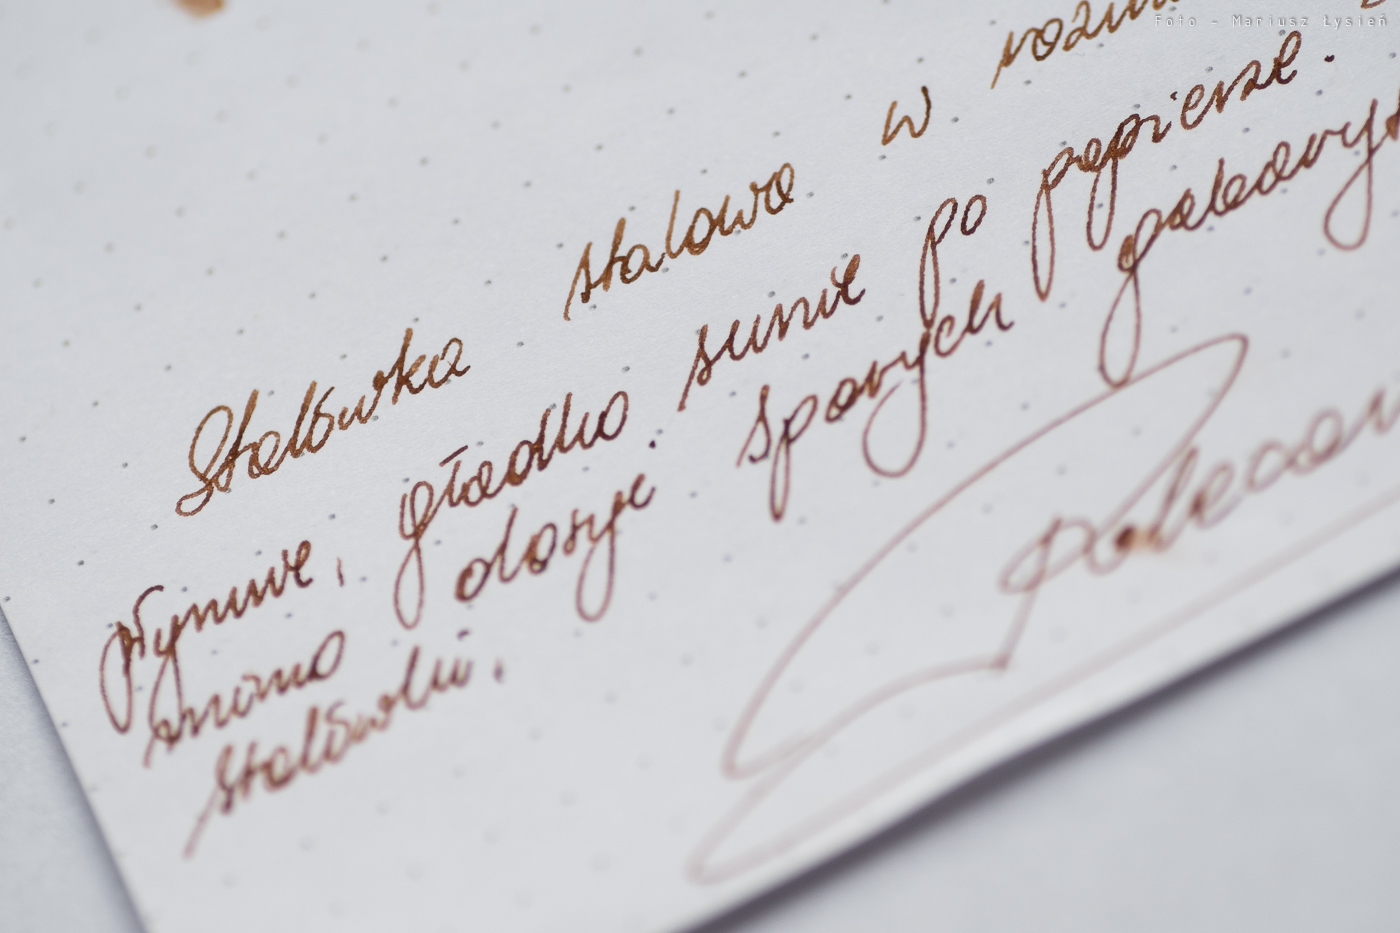 Foto - Mariusz Łysień
Stalówka stalowa w
płynnie, gładko sunie po papierze.
mimo dosyć sporych gabaryt
stalówki.
Polecam